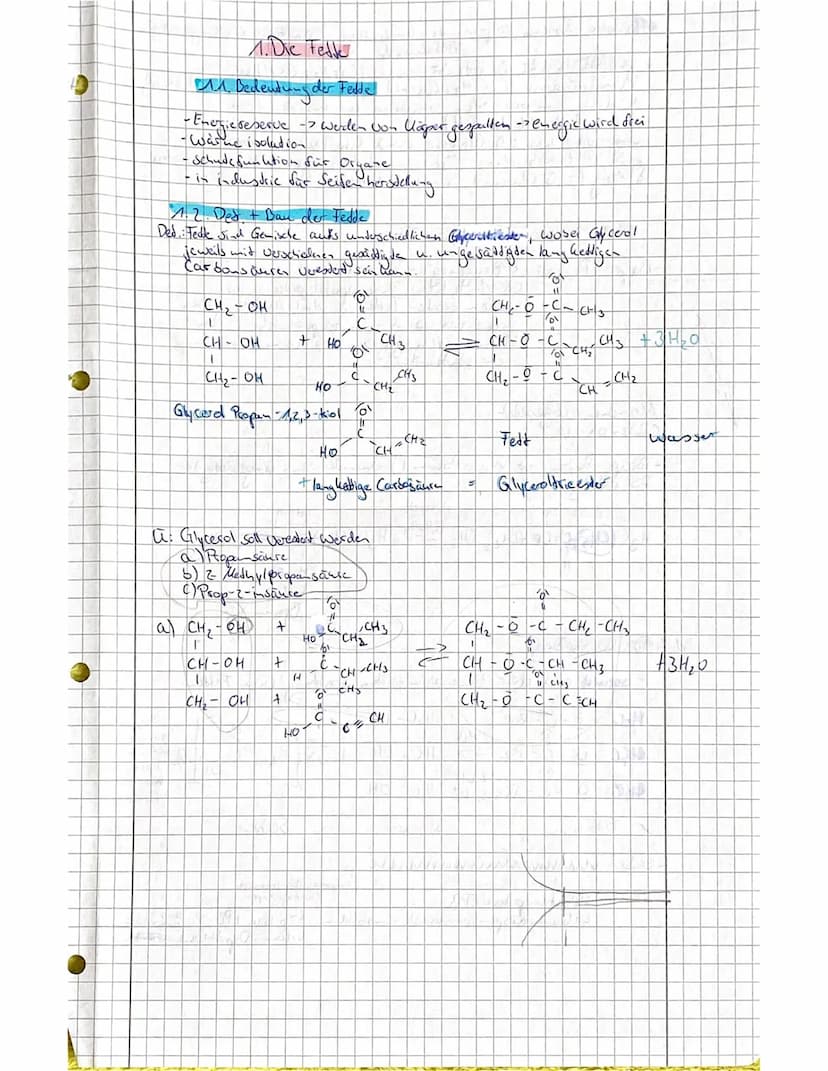 1. Die Fette
1.1. Bedeutung der Fette
- Energiereserve -> werden von Körper gespalten -> energie wird frei
- Wärme isolation
- schutzfunktion für Organe
- in industrie für Seifenherstellung
1.2. Def. + Bau der Fette
Def.: Fette sind Gemische aus unterschiedlichen Glycerintriester, wobei Glycerol
jeweils mit verschiednen gesättigten u. ungesättigten langkettigen
Carbonsäuren verestert sein kann.
CH₂ - OH
CH - OH
CH₂ - OH
+
HO C CH₃
HO C CH₂ CH₃
HO C CH = CH₂
⇌
CH₂ - O - C - CH₃
CH - O - C CH₂ CH₃ + 3H₂O
CH₂ - O - C CH = CH₂
Glycerol Propan-1,2,3-triol
Fett Wasser
+ langkettige Carbonsäure = Glyceroltriester
Ü: Glycerol soll verestert werden
a) Propansäure
b) 2-Methylpropansäure
c) Prop-2-insäure
a) CH₂ - OH + HO C CH₂ CH₃ ⇌ CH₂ - O - C - CH₂ - CH₃
CH - OH + H C CH - CH₃ CH₃ CH - O - C - CH - CH₃ CH₃ + 3H₂O
CH₂ - OH + HO C C ≡ CH CH₂ - O - C - C ≡ CH